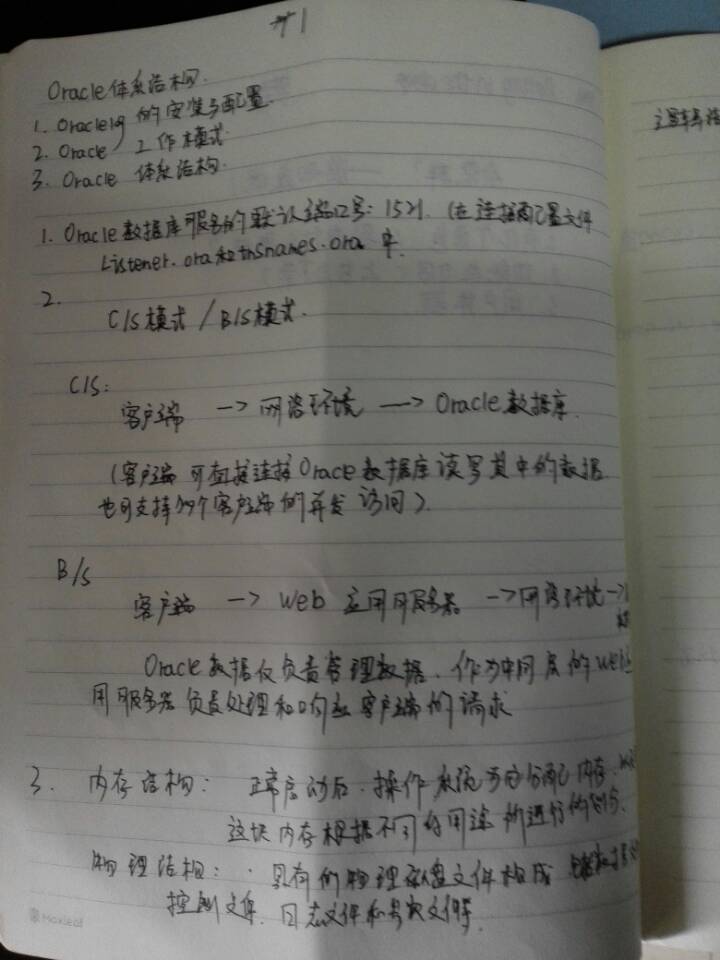 Oracle体系结构.
1. Oracle 的安装与配置.
2. Oracle 工作模式.
3. Oracle 体系结构.
1. Oracle数据库服务的默认端口号: 1521. (在连接配置文件
Listener.ora和tnsnames.ora 中.
2.
C/S模式 / B/S模式.
C/S:
客户端 —> 网络环境 —> Oracle数据库.
(客户端 可直接连接Oracle数据库读写其中的数据.
也可支持多个客户端的并发访问).
B/S
客户端 —> Web 应用服务器 —> 网络环境 —>
Oracle数据仅负责管理数据. 作为中间层的Web
用服务器负责处理和响应客户端的请求
3. 内存结构: 正常启动后. 操作系统 分配内存.
这块内存根据不同的用途所进行的划分.
物理结构: 具有的物理磁盘文件构成
控制文件. 日志文件和 文件等.
Moxleaf
主